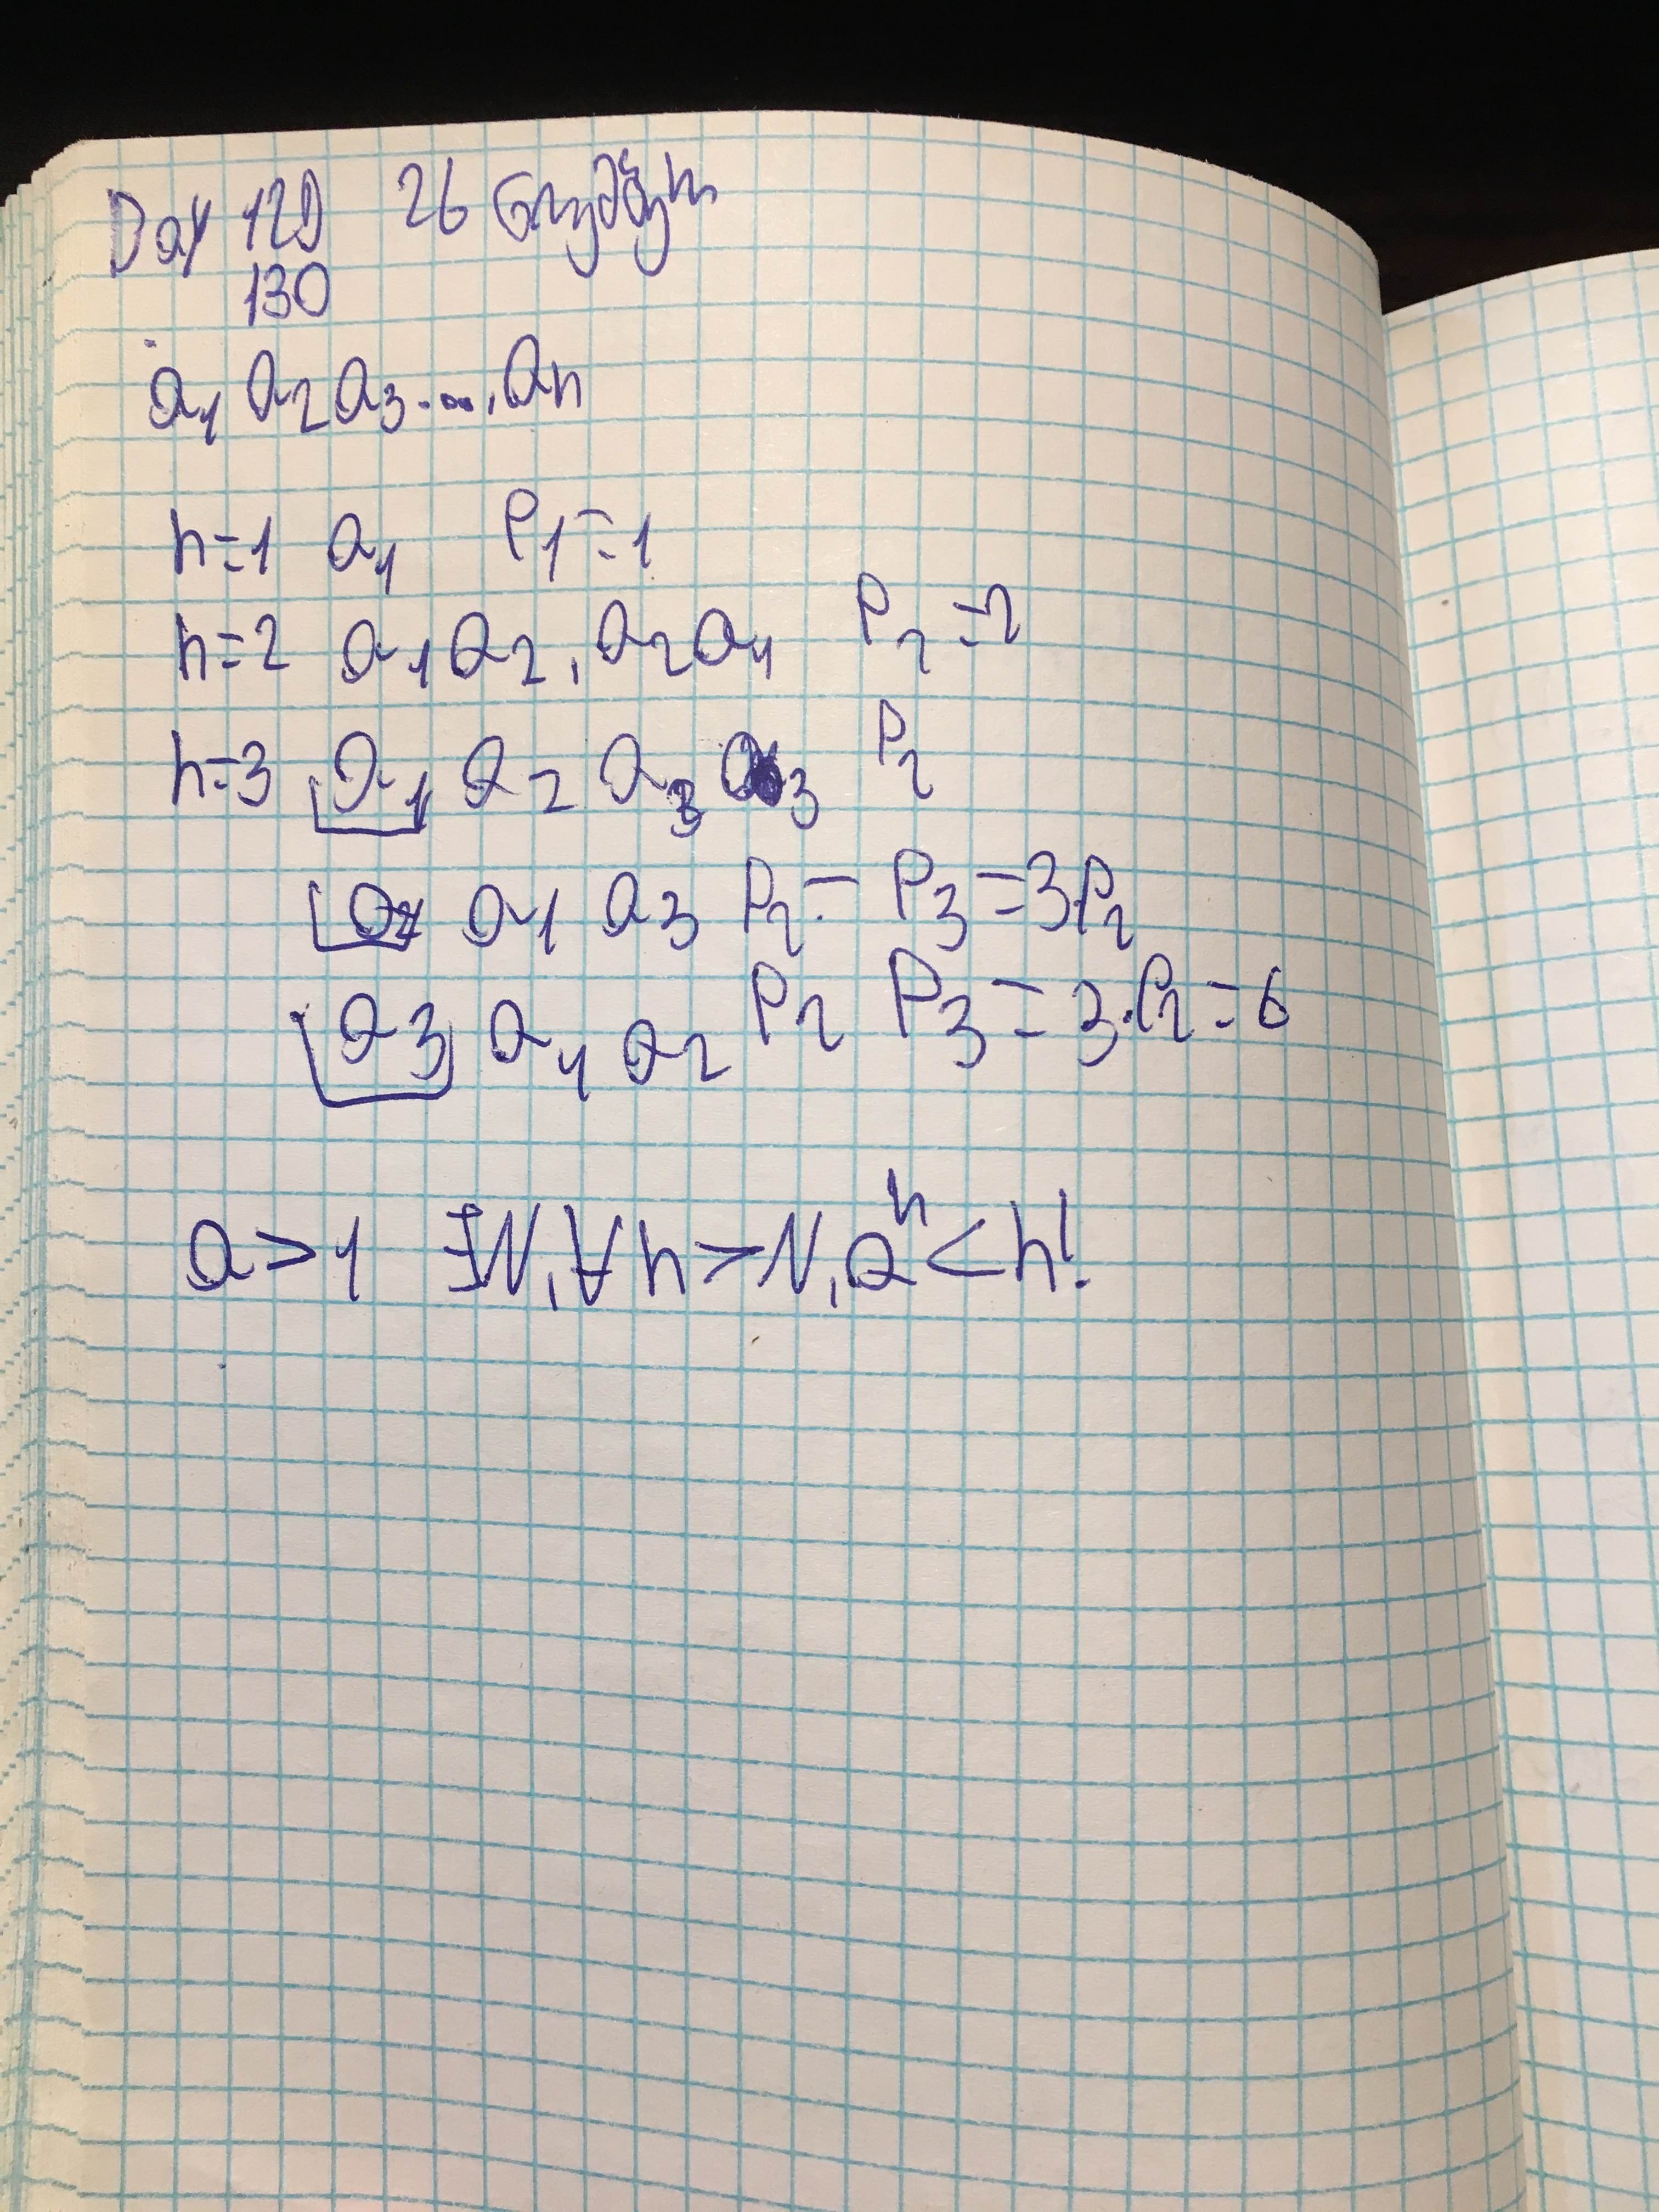 Day 129 26 грудня
130
a₁ a₂ a₃ ..., aₙ
n=1 a₁ P₁=1
n=2 a₁a₂, a₂a₁ P₂=2
n=3 a₁ a₂ a₃ P₂
a₂ a₁ a₃ P₂ – P₃=3P₂
a₃ a₁ a₂ P₂ P₃=3·P₂=6
a>1 ∃N, ∀n>N, aⁿ<n!